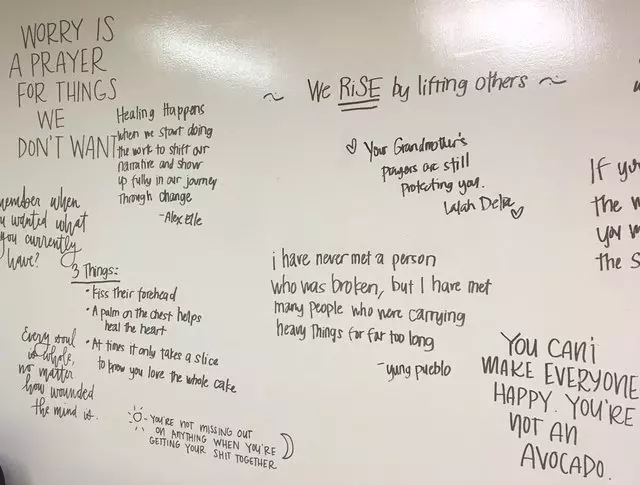 WORRY IS
A PRAYER
FOR THINGS
WE
DON'T WANT
Healing Happens
when we start doing
the work to shift our
narrative and show
up fully in our journey
Through change
-Alex Elle
~ We RiSE by lifting others ~
Your Grandmother's
prayers are still
protecting you.
Lalah Delia
If you
the
you
the S
when
wanted what
you currently
have?
3 Things:
• Kiss their forehead
• A palm on the chest helps
heal the heart
• At times it only takes a slice
to know you love the whole cake
i have never met a person
who was broken, but I have met
many people who were carrying
heavy things for far too long
-yung pueblo
Every soul
is whole,
no matter
how wounded
the mind is.
- YOU'RE NOT MISSING OUT
ON ANYTHING WHEN YOU'RE
GETTING YOUR SHIT TOGETHER
YOU CAN'T
MAKE EVERYONE
HAPPY. YOU'RE
NOT AN
AVOCADO.